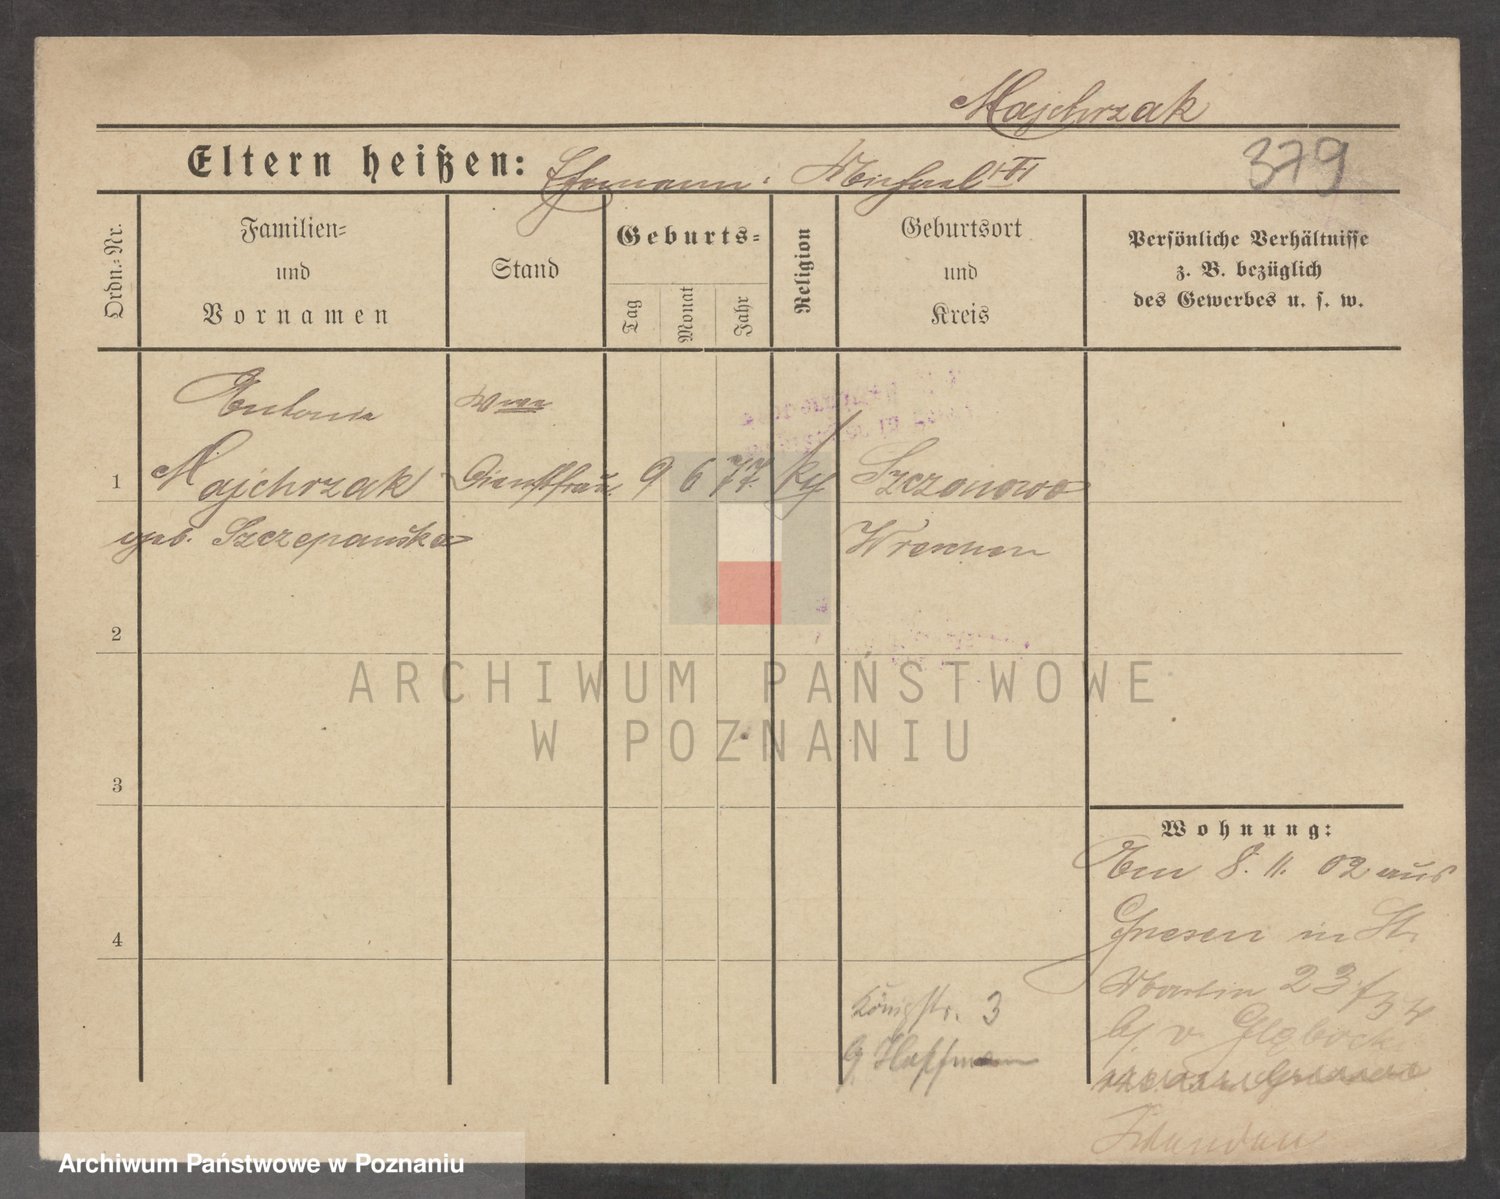 Majchrzak
Eltern heißen: Ehemann: Michael III
379
Ordn.-Nr.
Familien-
und
Vornamen
Stand
Geburts-
Tag
Monat
Jahr
Religion
Geburtsort
und
Kreis
Persönliche Verhältnisse
z. B. bezüglich
des Gewerbes u. s. w.
Antonie
1 Majchrzak Dienstfrau 9 6 77 Szczonowo
geb. Szczepańska Wreschen
2
3
4
ARCHIWUM PAŃSTWOWE
W POZNANIU
Wohnung:
Am 8. 11. 02 aus
Gnesen in St.
Martin 23
b/ v Głębock
Königstr. 3
b/ Hoffmann
Archiwum Państwowe w Poznaniu